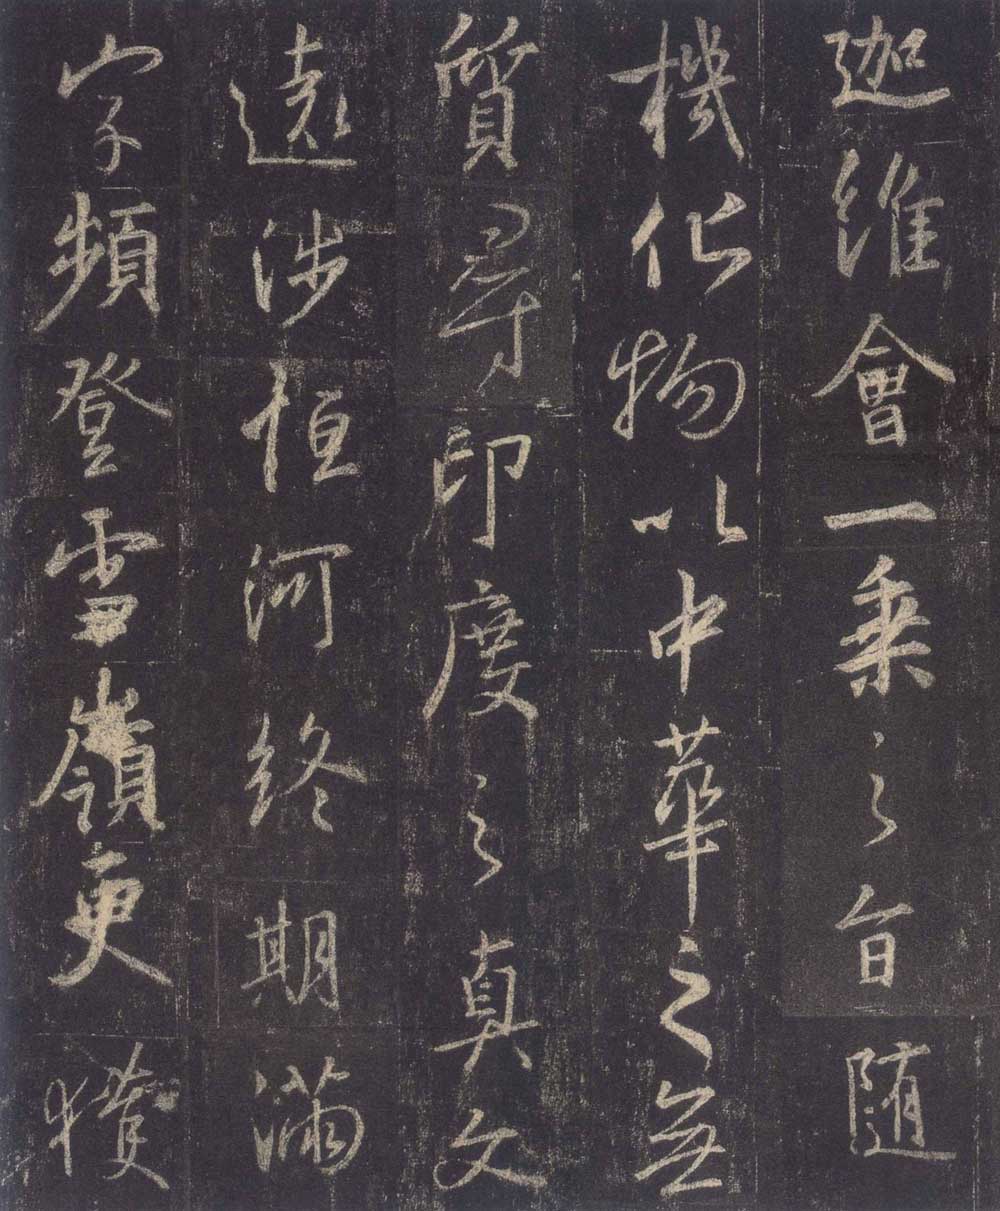 迦維會一乘之旨随
機化物以中華之無
質尋印度之真文
遠涉恒河終期滿
字頻登雪嶺更獲